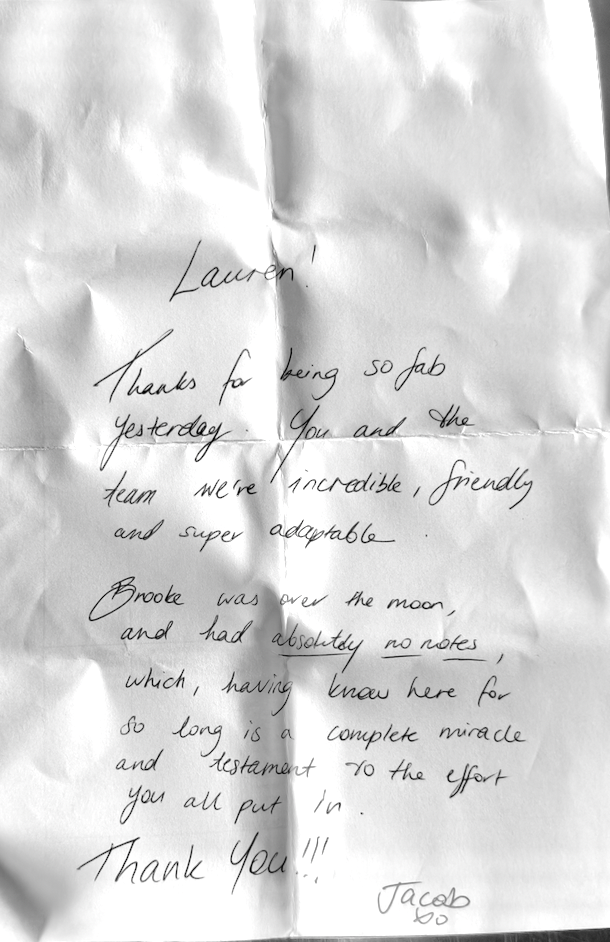 Lauren!
Thanks for being so fab
yesterday. You and the
team we're incredible, friendly
and super adaptable.
Brooke was over the moon,
and had absolutely no notes,
which, having know here for
so long is a complete miracle
and testament to the effort
you all put in.
Thank You!!!
Jacob
xo